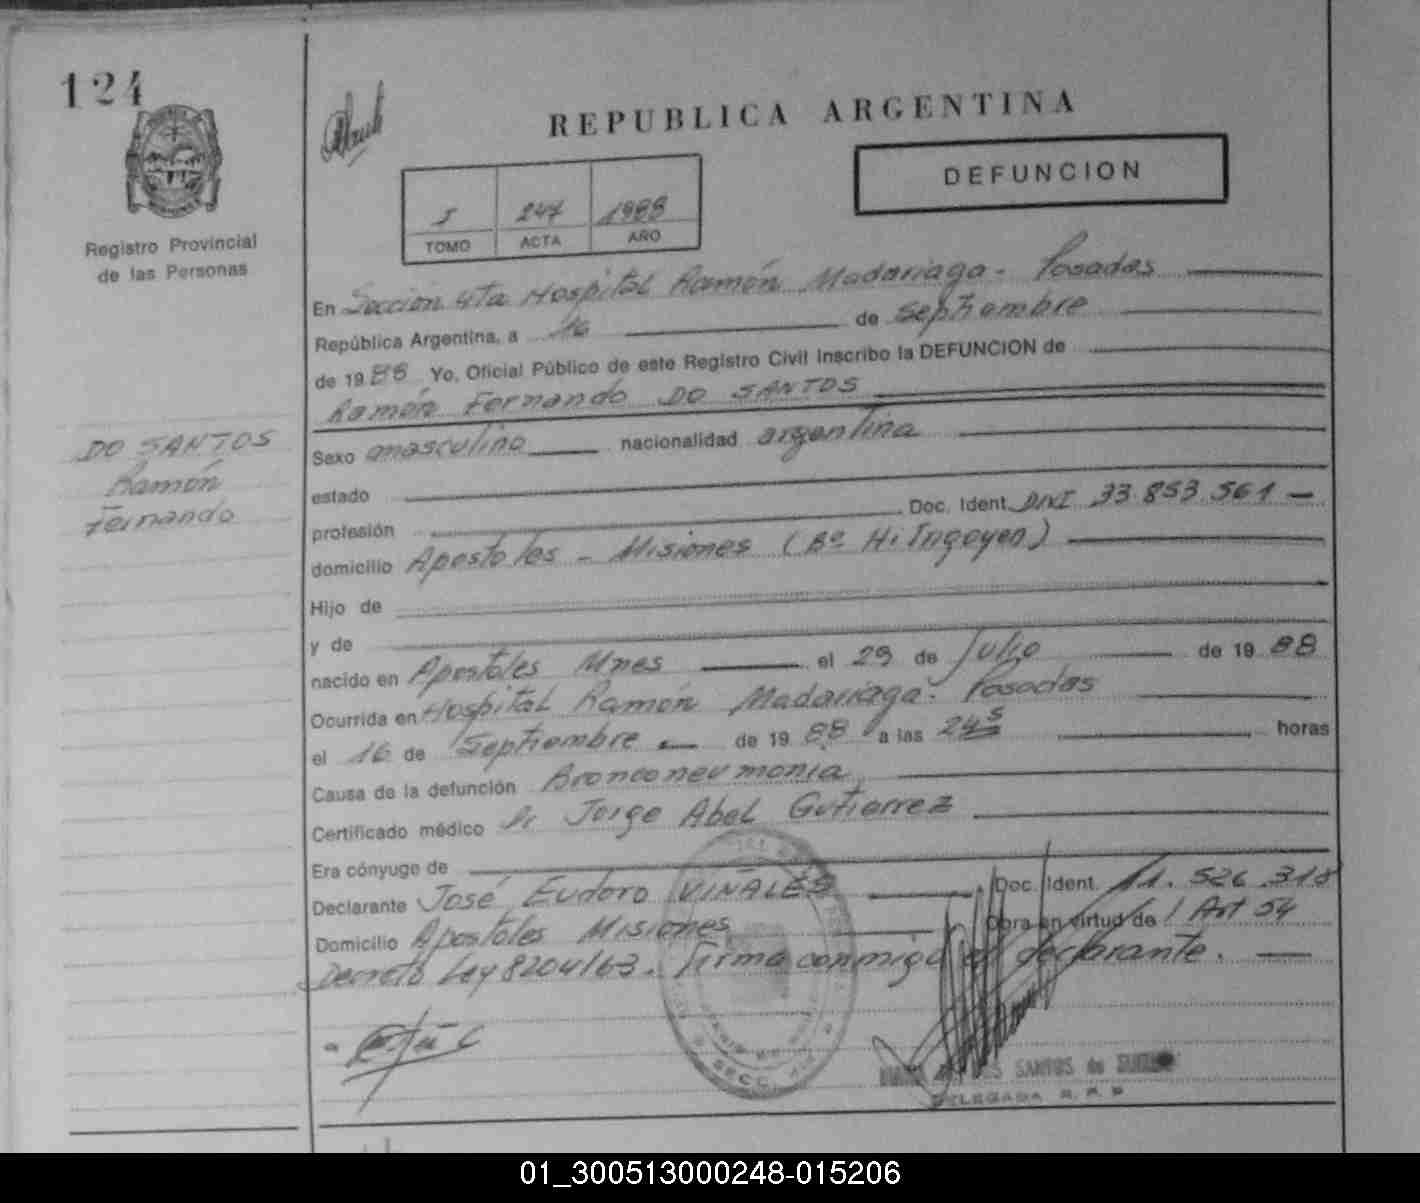 124
REPUBLICA ARGENTINA
DEFUNCION
I 247 1988
TOMO ACTA AÑO
Registro Provincial
de las Personas
En Sección 4ta Hospital Ramón Madariaga - Posadas
República Argentina, a 16 de septiembre
de 1988 Yo, Oficial Público de este Registro Civil Inscribo la DEFUNCION de
Ramón Fernando DO SANTOS
DO SANTOS
Ramón
Fernando
Sexo masculino nacionalidad argentina
estado
profesión Doc. Ident. DNI 33.853.561 -
domicilio Apostoles - Misiones (Bº H. Irigoyen)
Hijo de
y de
nacido en Apostoles Mnes el 29 de Julio de 1988
Ocurrida en Hospital Ramón Madariaga - Posadas
el 16 de Septiembre de 1988 a las 24 horas
Causa de la defunción Bronconeumonia
Certificado médico Dr Jorge Abel Gutierrez
Era cónyuge de
Declarante José Eudoro VIÑALES Doc. Ident. 11.526.318
Domicilio Apostoles Misiones Obra en virtud de / Art 54
Decreto Ley 8204/63. Firma conmigo el declarante.
SANTOS de
DELEGADA R. P. P
01_300513000248-015206